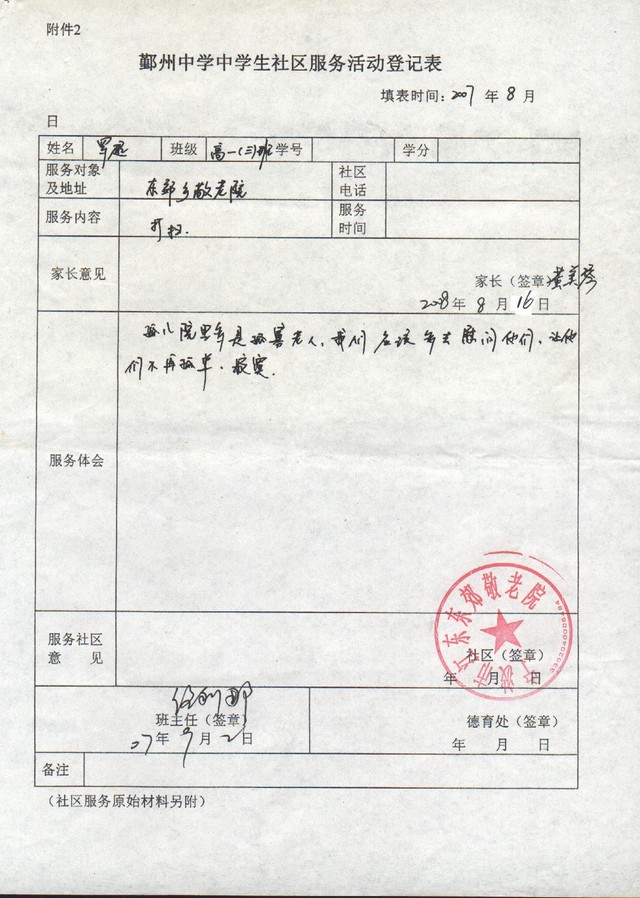 附件2
鄞州中学中学生社区服务活动登记表
填表时间：2007 年 8 月
日
姓名 班级 高一(三)班 学号 学分
服务对象及地址 东郊乡敬老院 社区电话
服务内容 打扫. 服务时间
家长意见
家长（签章）黄美琴
2008年 8 月 16 日
服务体会
孤儿院里多是孤寡老人，我们应该多去慰问他们，让他
们不再孤单、寂寞.
服务社区意 见
社区（签章）
年 月 日
江东东郊敬老院
宁波市
班主任（签章）
07 年 9 月 2 日
德育处（签章）
年 月 日
备注
（社区服务原始材料另附）